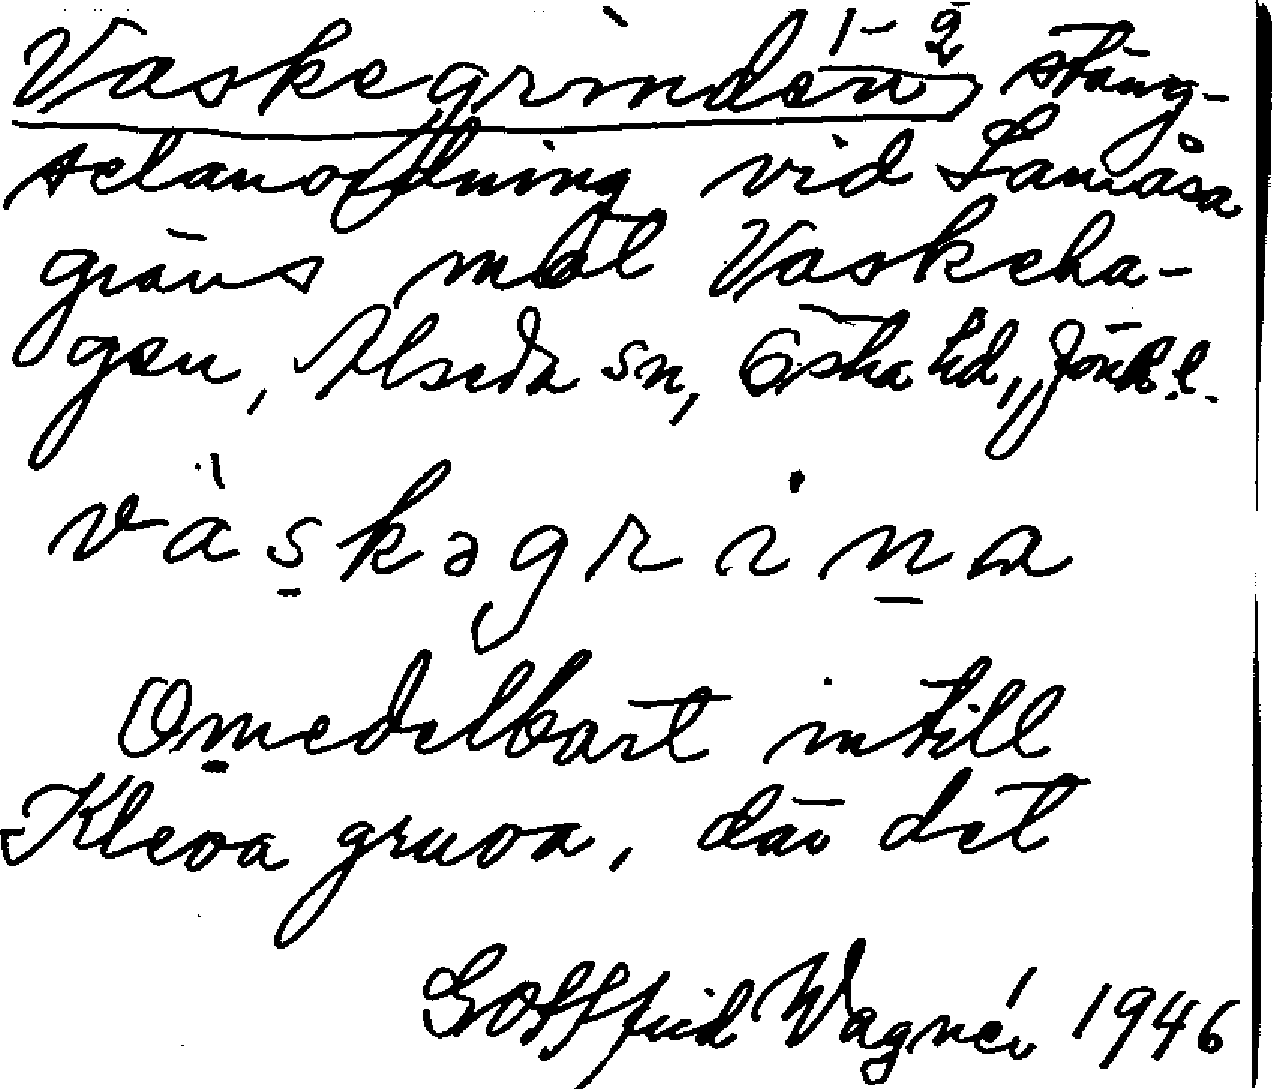 Vaskegrinden, 1-2 stäng-
selanordning vid Lamåsa
gräns mot Vaskeha-
gen, Alseda sn, Östra hd, Jönk. l.
vàskəgrina
Omedelbart intill
Kleva gruva, där det
Gottfrid Wagnér 1946